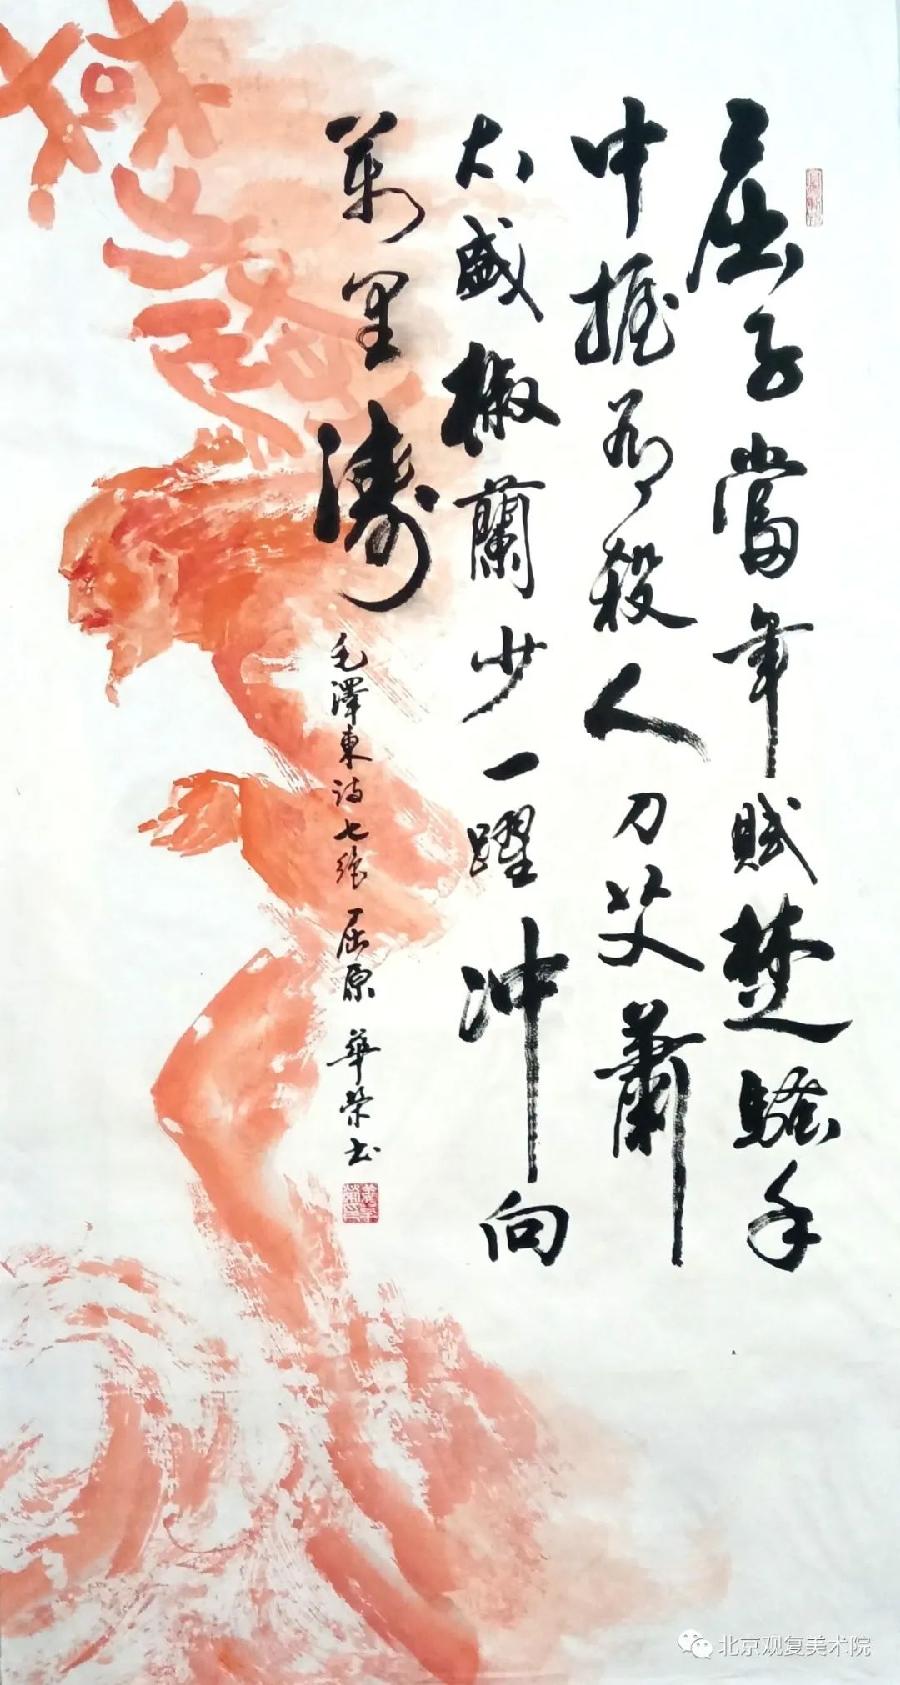 屈子當年賦楚騷手
中握有殺人刀艾蕭
太盛椒蘭少一躍沖向
萬里濤
毛澤東詩七絕 屈原 華榮書
北京观复美术院